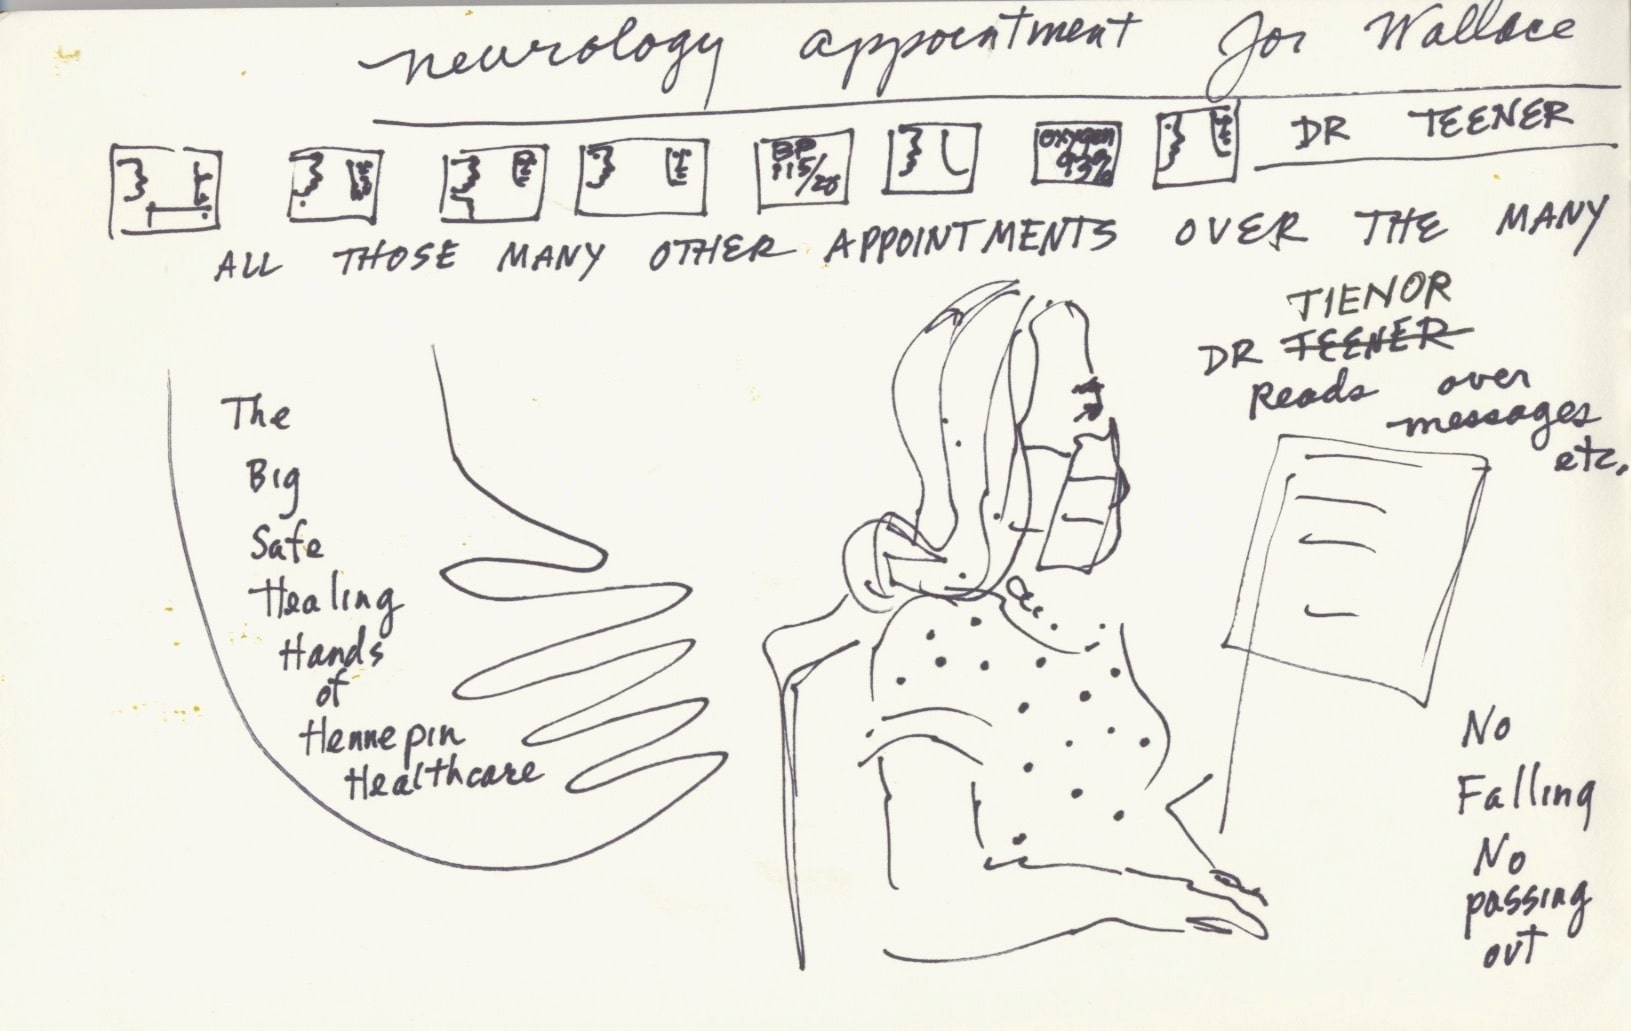 neurology appointment for Wallace
DR TEENER
BP
115/
Oxygen
93%
ALL THOSE MANY OTHER APPOINTMENTS OVER THE MANY
TIENOR
DR TEENER
Reads over
messages
etc.
The
Big
Safe
Healing
Hands
of
Hennepin
Healthcare
No
Falling
No
passing
out